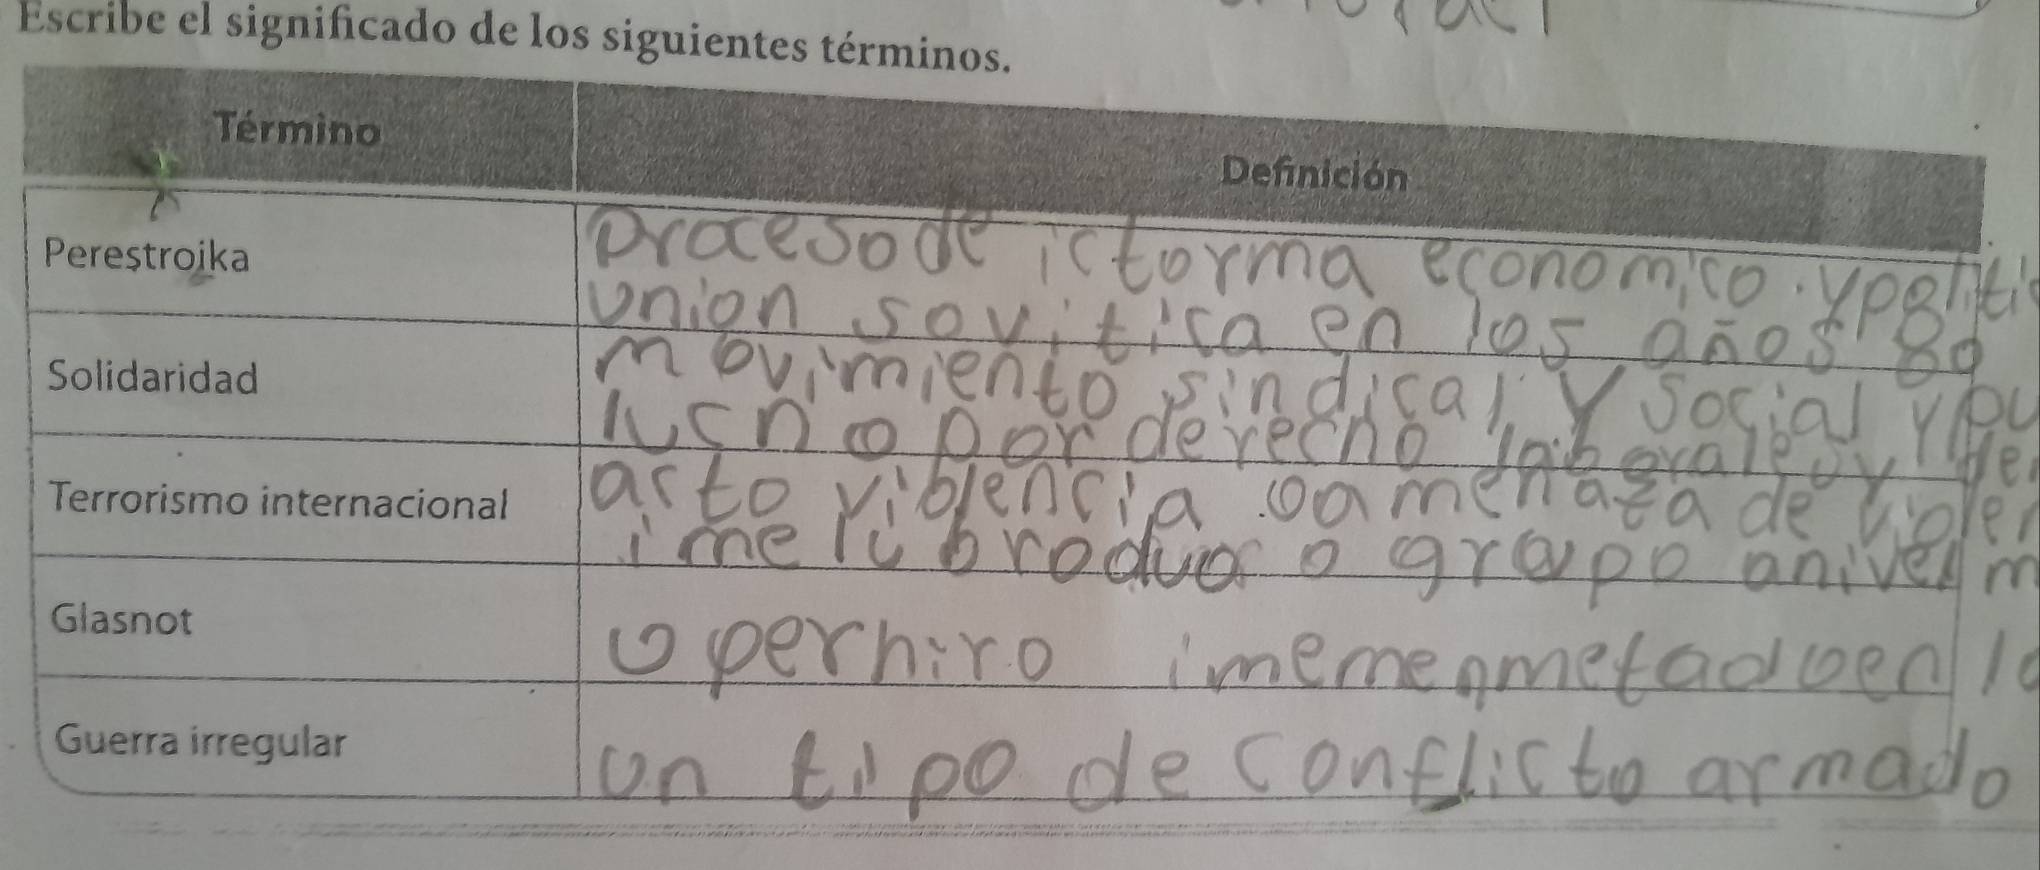 Escribe el significado de los siguientes términos.
Término
Definición
Perestrojka
proceso de ictorma economico. y politi
union sovitica en los años 80
Solidaridad
movimiento sindical y social y pu
por derecho laborales y
Terrorismo internacional
acto violencia o amenaza de violen
o grupo anivel m
Glasnot
operhiro imemenmetado en la
Guerra irregular
un tipo de conflicto armado